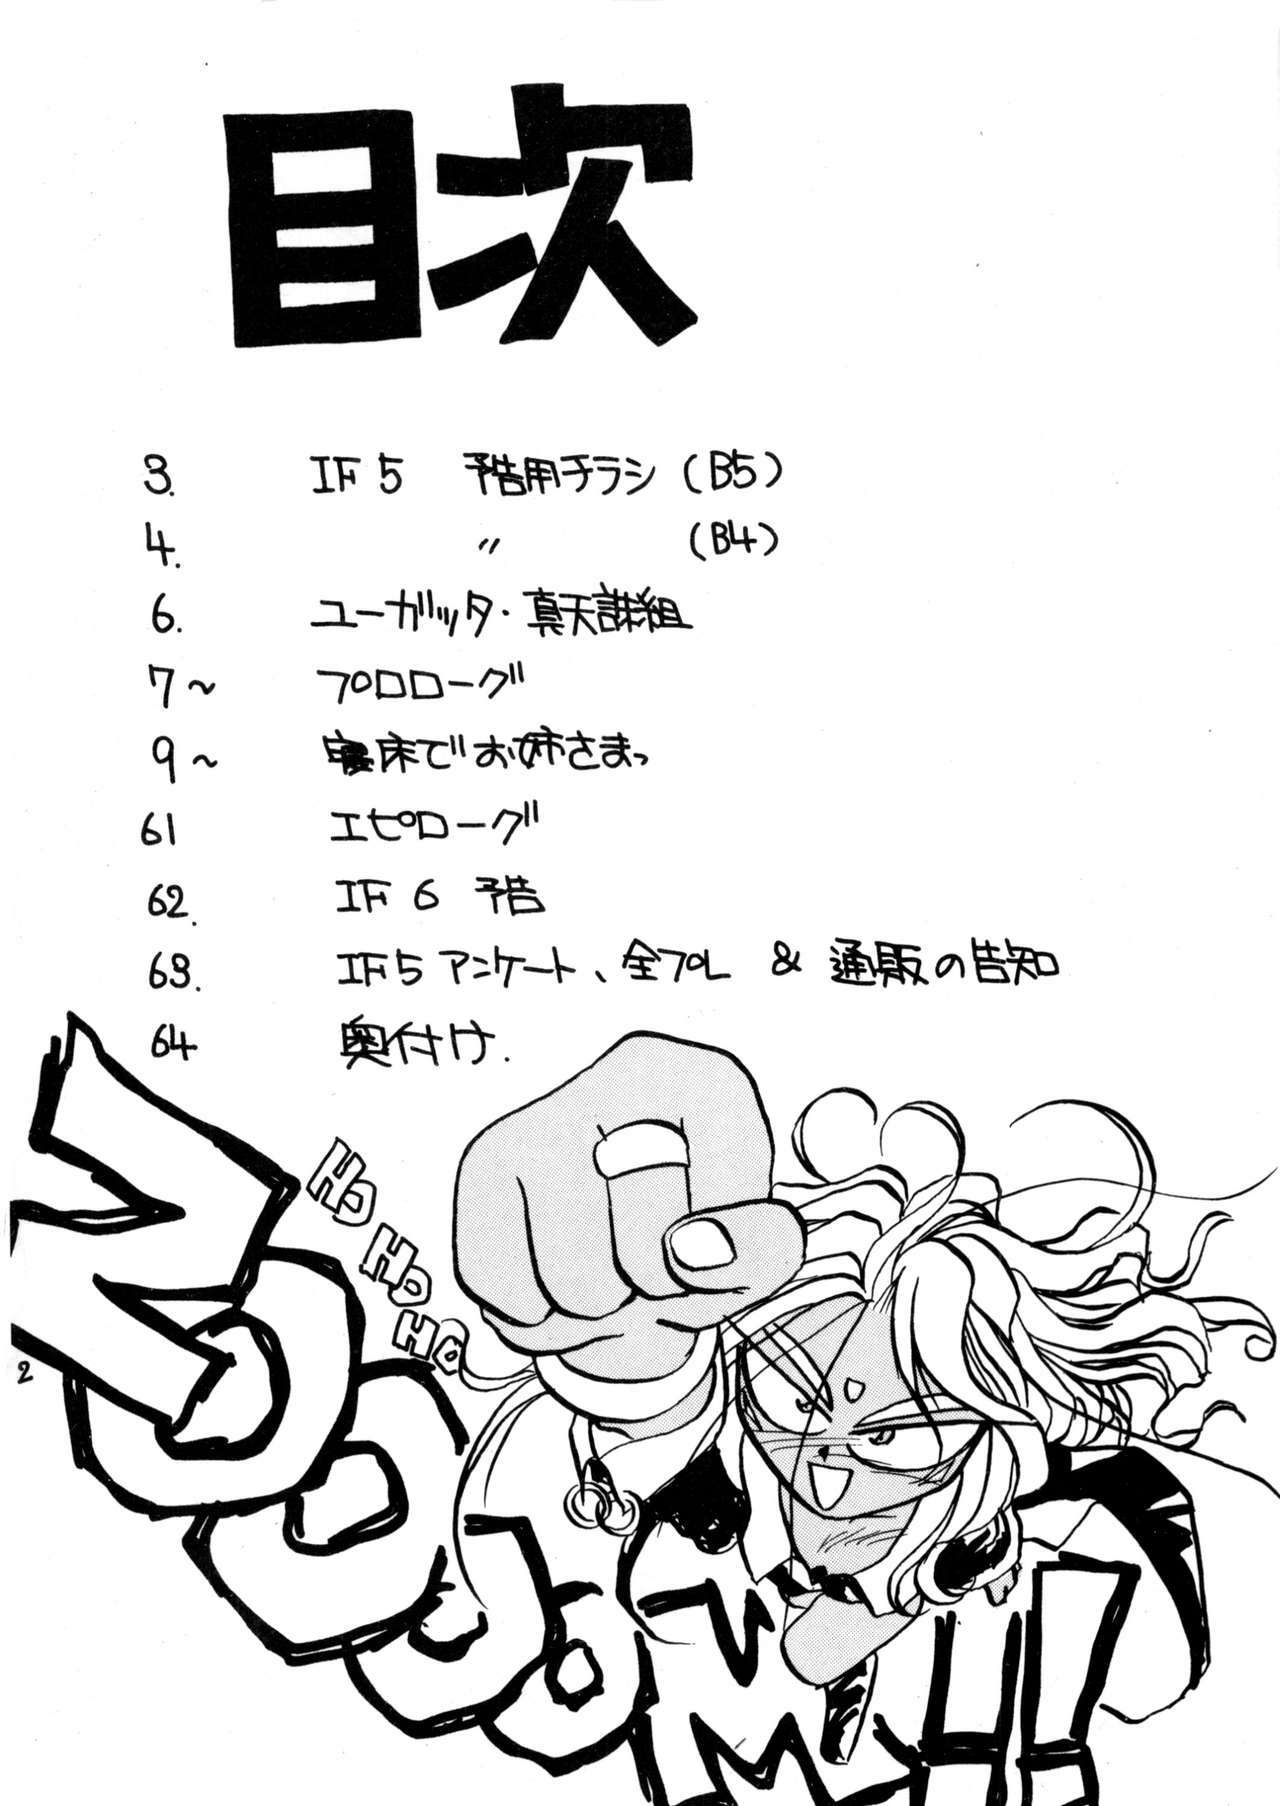 目次
3. IF5 予告用チラシ(B5)
4. 〃 (B4)
6. ユーガッタ・真天誅組
7~ プロローグ
9~ 寝床でお姉さまっ
61 エピローグ
62. IF6 予告
63. IF5アンケート、全プレ & 通販の告知
64 奥付け.
HO
HO
HO
2